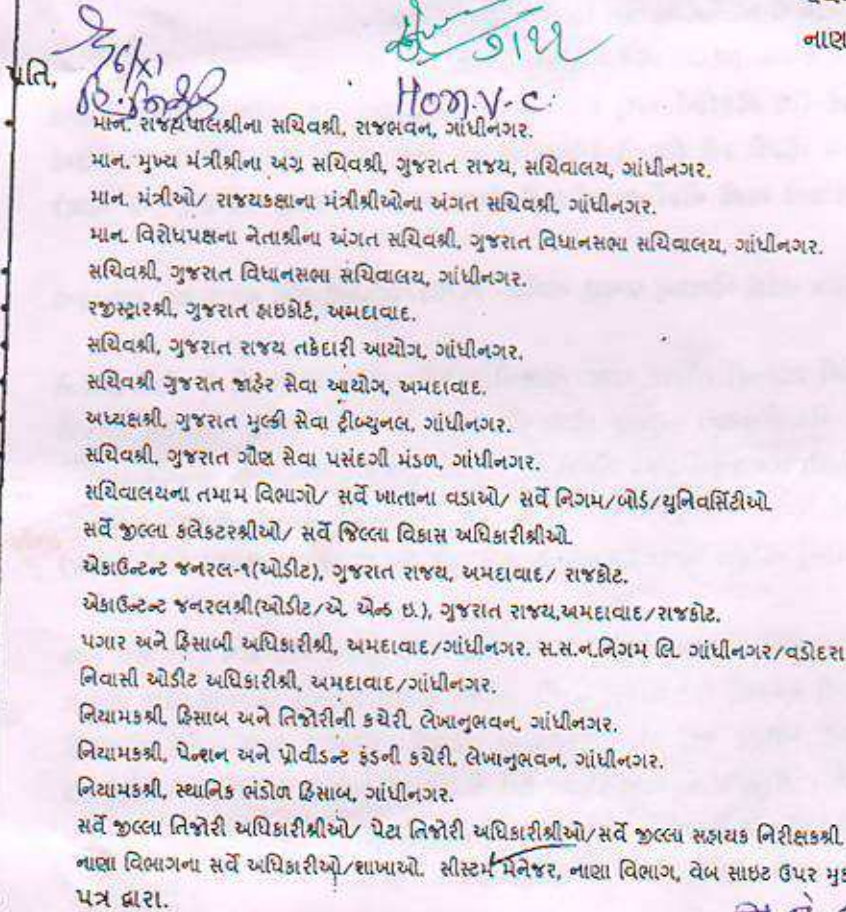 નાણ
પ્રતિ,
26/XI
Hon. V. C.
માન. રાજ્યપાલશ્રીના સચિવશ્રી, રાજભવન, ગાંધીનગર.
માન. મુખ્ય મંત્રીશ્રીના અગ્ર સચિવશ્રી, ગુજરાત રાજય, સચિવાલય, ગાંધીનગર.
માન. મંત્રીઓ/ રાજયકક્ષાના મંત્રીશ્રીઓના અંગત સચિવશ્રી, ગાંધીનગર.
માન. વિરોધપક્ષના નેતાશ્રીના અંગત સચિવશ્રી, ગુજરાત વિધાનસભા સચિવાલય, ગાંધીનગર.
સચિવશ્રી, ગુજરાત વિધાનસભા સચિવાલય, ગાંધીનગર.
રજીસ્ટ્રારશ્રી, ગુજરાત હાઇકોર્ટ, અમદાવાદ.
સચિવશ્રી, ગુજરાત રાજય તકેદારી આયોગ, ગાંધીનગર.
સચિવશ્રી ગુજરાત જાહેર સેવા આયોગ, અમદાવાદ.
અધ્યક્ષશ્રી, ગુજરાત મુલ્કી સેવા ટ્રીબ્યુનલ, ગાંધીનગર.
સચિવશ્રી, ગુજરાત ગૌણ સેવા પસંદગી મંડળ, ગાંધીનગર.
સચિવાલયના તમામ વિભાગો/ સર્વે ખાતાના વડાઓ/ સર્વે નિગમ/બોર્ડ/યુનિવર્સિટીઓ.
સર્વે જીલ્લા કલેકટરશ્રીઓ/ સર્વે જિલ્લા વિકાસ અધિકારીશ્રીઓ.
એકાઉન્ટન્ટ જનરલ-૧(ઓડીટ), ગુજરાત રાજય, અમદાવાદ/ રાજકોટ.
એકાઉન્ટન્ટ જનરલશ્રી(ઓડીટ/એ. એન્ડ ઇ.), ગુજરાત રાજય,અમદાવાદ/રાજકોટ.
પગાર અને હિસાબી અધિકારીશ્રી, અમદાવાદ/ગાંધીનગર. સ.સ.ન.નિગમ લિ. ગાંધીનગર/વડોદરા
નિવાસી ઓડીટ અધિકારીશ્રી, અમદાવાદ/ગાંધીનગર.
નિયામકશ્રી, હિસાબ અને તિજોરીની કચેરી, લેખાનુભવન, ગાંધીનગર.
નિયામકશ્રી, પેન્શન અને પ્રોવીડન્ટ ફંડની કચેરી, લેખાનુભવન, ગાંધીનગર.
નિયામકશ્રી, સ્થાનિક ભંડોળ હિસાબ, ગાંધીનગર.
સર્વે જીલ્લા તિજોરી અધિકારીશ્રીઓ/ પેટા તિજોરી અધિકારીશ્રીઓ/સર્વે જીલ્લા સહાયક નિરીક્ષકશ્રી.
નાણા વિભાગના સર્વે અધિકારીઓ/શાખાઓ. સીસ્ટમ મેનેજર, નાણા વિભાગ, વેબ સાઇટ ઉપર
પત્ર દ્વારા.